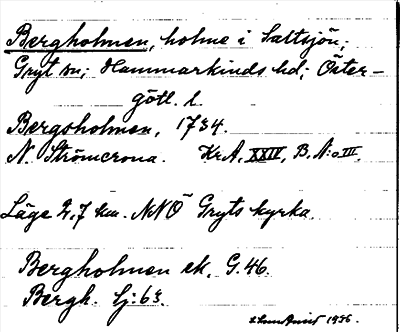 Bergholmen, holme i Saltsjön;
Gryt sn; Hammarkinds hd; Öster-
götl. l.
Bergsholmen, 1734.
N. Strömcrona. Kr.A. XXIV, B, N:o III.
Läge 2,7 km. NNÖ Gryts kyrka.
Bergholmen ek. G.46.
Bergh. Lj:63.
1936